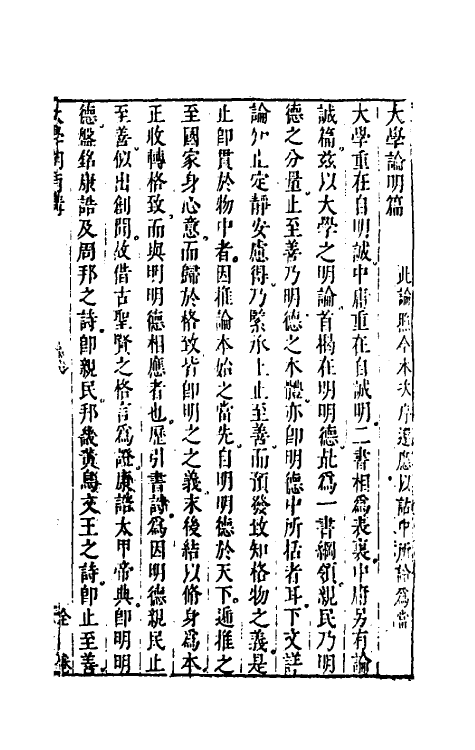 大學論明篇
此論照今本次序還應以詁中所論爲當
大學重在自明誠中庸重在自誠明二書相爲表裏中庸另有論
誠篇茲以大學之明論首揭在明明德此爲一書綱領親民乃明
德之分量止至善乃明德之本體亦即明德中所括者耳下文詳
論知止定靜安慮得乃緊承上止至善而預發致知格物之義是
止即貫於物中者因推論本始之當先自明明德於天下遞推之
至國家身心意而歸於格致皆即明之之義末後結以脩身爲本
正收轉格致而與明明德相應者也歷引書詩爲因明德親民止
至善似出創聞故借古聖賢之格言爲證康誥太甲帝典即明明
德盤銘康誥及周邦之詩即親民邦畿黃鳥文王之詩即止至善
大學
全卷